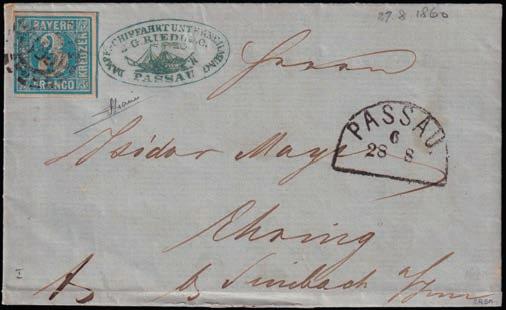 27.8 1860
BAYERN
3
KREUZER
FRANCO
DAMPF-SCHIFFAHRT UNTERNEHMUNG
G. RIEDL &C.
PASSAU
Herrn
PASSAU.
6
28 8
Isidor Mayr
Ehring
bei Simbach a/Inn
I